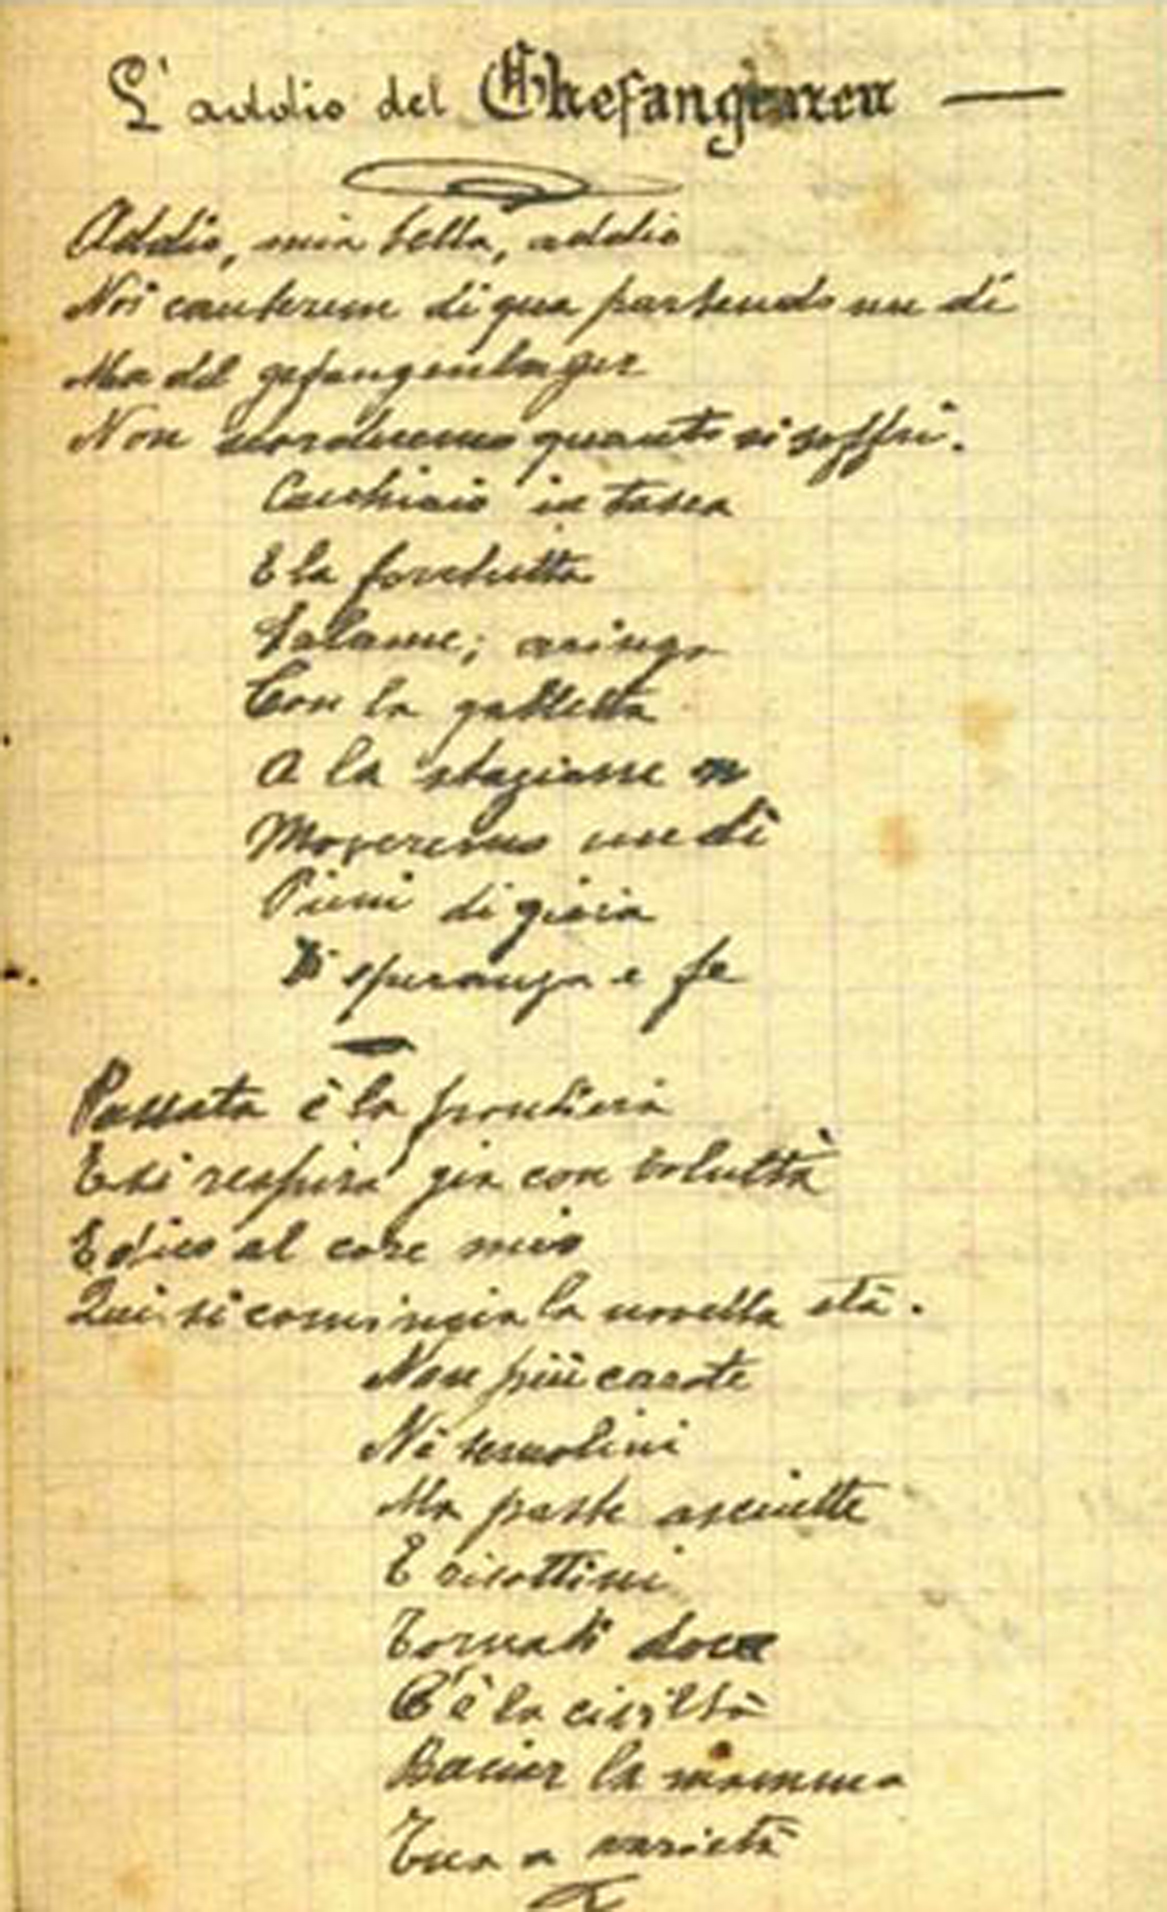 L'addio del Ghefangenen
Addio, mia bella, addio
Noi canterem di qua partendo un dí
Ma del gefangenlager
Non scorderemo quanto si soffrì.
Cucchiaio in tasca
E la forchetta
Salame, aringa
Con la galletta
A la stazione
Moveremo un dì
Pieni di gioia
Di speranza e fe
Passata è la frontiera
E si respira già con voluttà
E dico al core mio
Qui si comincia la novella età.
Non più carote
Nè semolini
Ma paste asciutte
E risottini
Tornati dove
C'è la civiltà
Baciar la mamma
a varietà